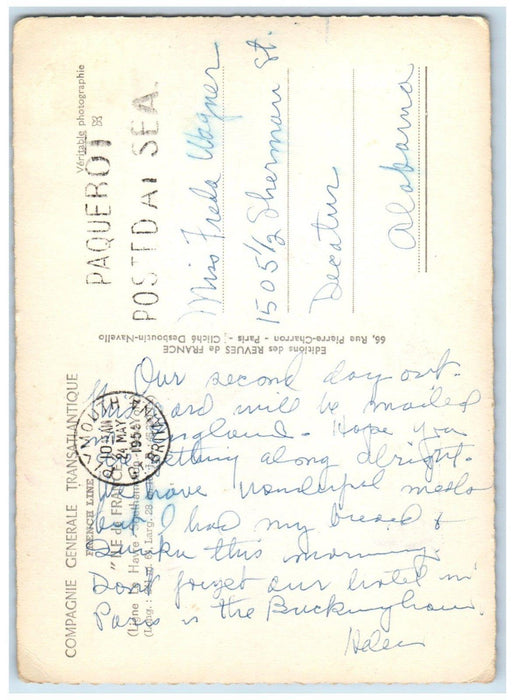 COMPAGNIE GENERALE TRANSATLANTIQUE
FRENCH LINE
"ILE de FRANCE"
(Ligne Le Havre
(Long.: Larg. 28
Véritable photographie
Editions des REVUES de FRANCE
66, Rue Pierre-Charron - Paris - Cliché Desboutin-Navello
PAQUEBOT
POSTED AT SEA.
PLYMOUTH
24 MAY
1954
Miss Freda Wagner
1505½ Sherman St.
Decatur
Alabama
Our second day out.
This card will be mailed
England - Hope you
getting along alright.
We have wonderful meals
but I had my bread &
this morning.
Don't forget our hotel in
Paris is the Buckingham.
Helen